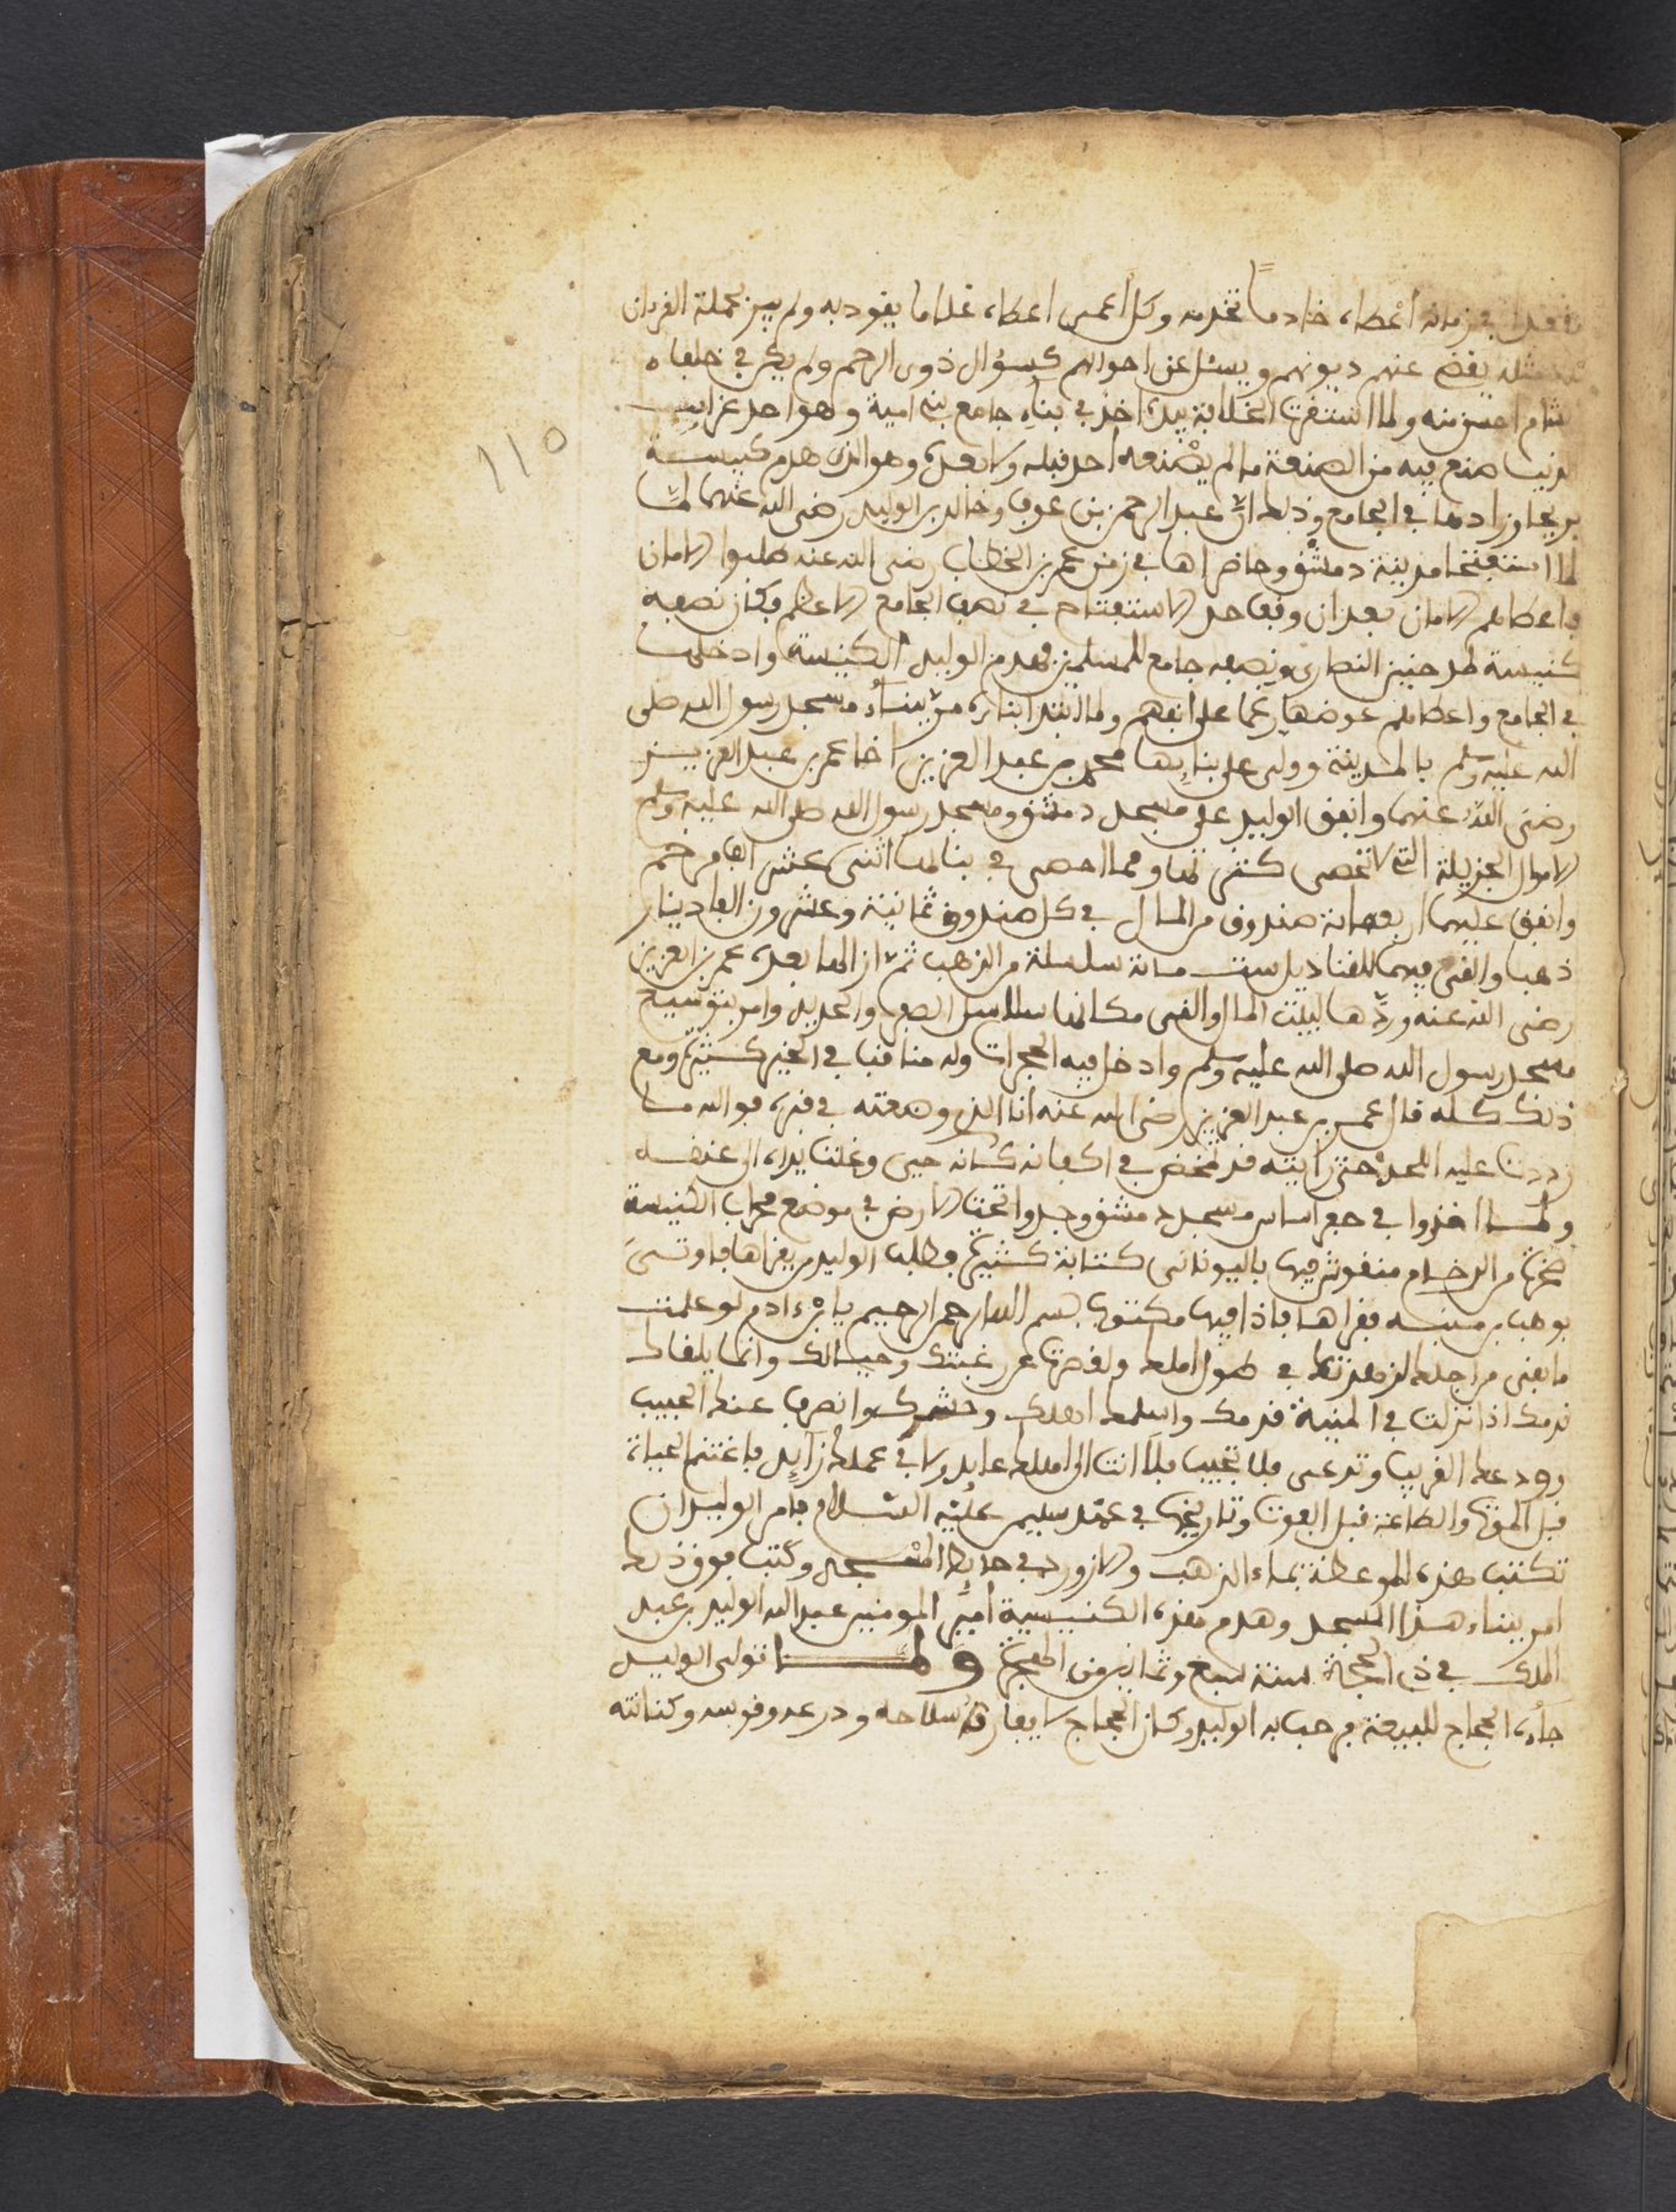 مقعد في زمانه أعطاه خادماً يخدمه وكل أعمى اعطاه غلاما يقود به ولم يبر بحملة القرءان
مثله يقضى عنهم ديونهم ويسئل عن احوالهم كسؤال ذوى الرحم ولم يكن في خلفاء
الشام احسن منه ولما استقرت الخلافة بيده اخذ في بناء جامع بنى امية وهو احد غرايب
الدنيا صنع فيه من الصنعة ما لم يصنعه احد قبله ولا بعده وهو الذى هدم كنيسة
يريحا وزادها في الجامع وذلك انّ عبد الرحمن بن عوف وخالد بن الوليد رضى الله عنهما لمّا
لما استفتحا مدينة دمشق وحاصراها في زمن عمر بن الخطاب رضى الله عنه طلبوا الامان
فاعطاهم الامان بعد ان وقف احد الاستفتاح في نصف الجامع الاعظم فكان نصفه
كنيسة النصارى ونصفه جامع للمسلمين فهدم الوليد الكنيسة وادخلها
في الجامع واعطاهم عوضها رغما على انفهم ولما ابتدا بناءه من بناء مسجد رسول الله صلى
الله عليه وسلم بالمدينة وولى على بنايها محمد بن عبد العزيز اخا عمر بن عبد العزيز
رضى الله عنهما وانفق الوليد على مسجد دمشق ومسجد رسول الله صلى الله عليه وسلم
الاموال الجزيلة التي لا تحصى كثرتها ومما احصى في بنائها اثنى عشر الف مرخم
وانفق عليهما اربعمائة صندوق من المال في كل صندوق ثمانية وعشرون الف دينار
ذهبا والقى فيهما للقناديل ست مائة سلسلة من الذهب ثم ازالها بعده عمر بن العزيز
رضى الله عنه وردّها لبيت المال والقى مكانها سلاسل الصفر والحديد وامر بتوسيع
مسجد رسول الله صلى الله عليه وسلم وادخل فيه الحجرات وله مناقب في الخير كثيرة ومع
ذلك كله قال عمر بن عبد العزيز رضى الله عنه انا الذى وضعته في قبره فوالله ما
رددت عليه اللحد حتى رأيته قد تمخض في اكفانه كانه حى وغلت يداه الى عنقه
ولما اخذوا في حفر اساس مسجد دمشق وجدوا تحت الارض في موضع محراب الكنيسة
صخرة من الرخام منقوش فيها باليونانى كتابة كثيرة فطلب الوليد من يقراها فاوتى
بوهب بن منبه فقراها فاذا فيها مكتوب بسم الله الرحمن الرحيم يا بن ءادم لو علمت
ما بقى من اجلك لزهدت في طول املك ولقصرت عن رغبتك وحيلتك وانما يلقاك
ندمك اذا نزلت في المنية قدمك واسلمك اهلك وحشمك وانصرف عنك الحبيب
وودعك القريب وتدعى فلا تجيب فلا انت الى اهلك عايد ولا في عملك زايد فاغتنم الحياة
قبل الموت والطاعة قبل الفوت وتاريخها في عهد سليمن عليه السلام فامر الوليد ان
تكتب هذه الموعظة بماء الذهب والازورد في حايط المسجد وكتب فوق ذلك
امر ببناء هذا المسجد وهدم هذه الكنيسية أمير المومنين عبد الله الوليد بن عبد
الملك في ذى الحجة سنة سبع وثمانين من الهجرة ولما تولى الوليد
جاءه الحجاج للبيعة فرحب به الوليد وكان الحجاج لا يفارقه سلاحه ودرعه وقوسه وكنانته
110